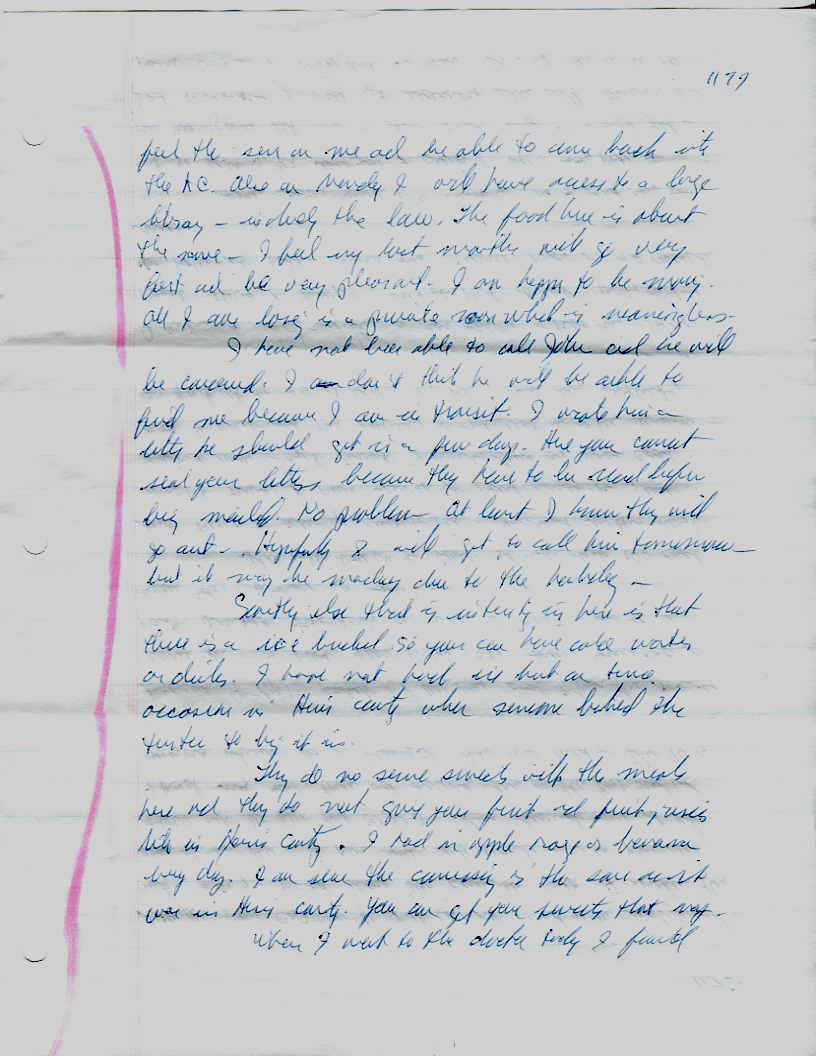 1179
feel the sun on me and be able to come back into
the AC. Also on Monday I will have access to a large
library – including the law. The food here is about
the same – I feel my last months will go very
fast and be very pleasant. I am happy to be moving.
All I am losing is a private room which is meaningless.
I have not been able to call John and he will
be concerned. I don't think he will be able to
find me because I am in transit. I wrote him a
letter he should get in a few days. Here you cannot
seal your letters because they have to be read before
being mailed. No problem – At least I know they will
go out – Hopefully I will get to call him tomorrow –
but it may be Monday due to the holiday –
Something else that is interesting in here is that
there is a ice bucket so you can have cold water
or drinks. I have not had ice but on two
occasions in Harris County when someone bribed the
trustee to bring it in.
They do no serve sweets with the meals
here and they do not give you fruit and fruit juices
like in Harris County. I had an apple orange or banana
every day. I am sure the commissary is the same as it
was in Harris County. You can get your sweets that way.
When I went to the doctor today I found